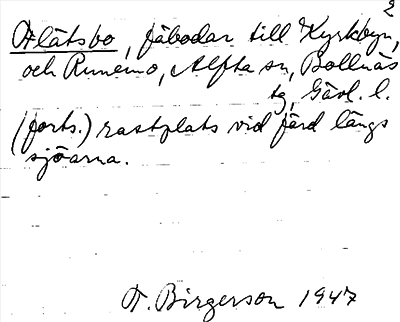 2
Flätsbo, fäbodar till Kyrkbyn,
och Runemo, Alfta sn, Bollnäs
tg, Gävl. l.
(forts.) rastplats vid färd längs
sjöarna.
F. Birgerson 1947